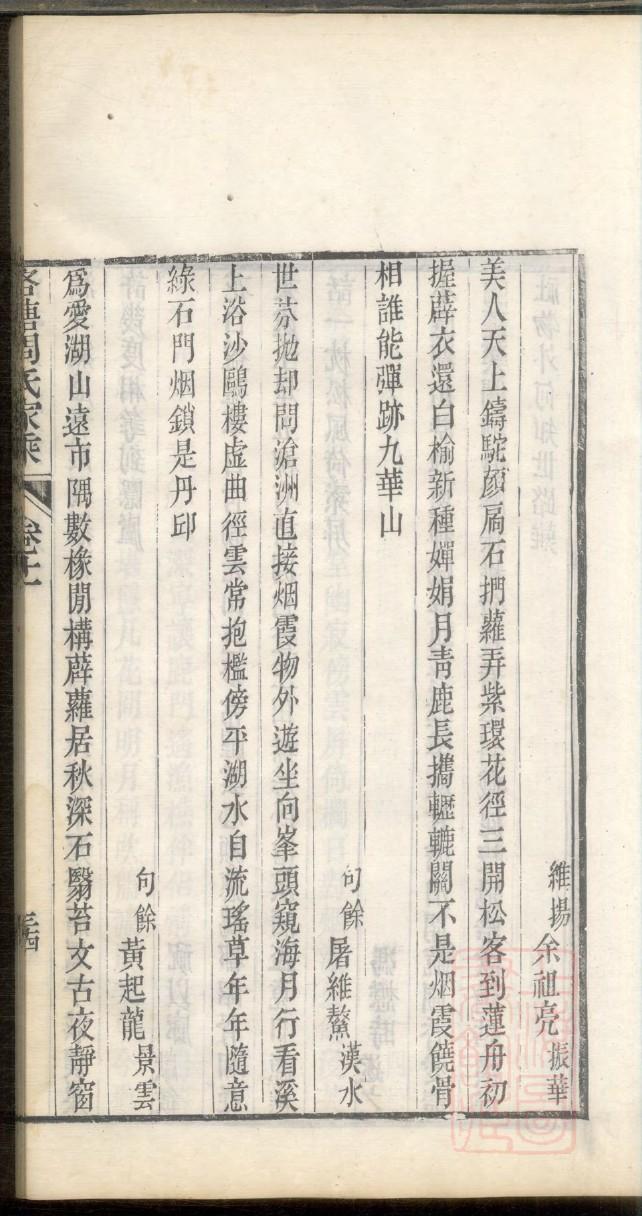 維揚余祖亮振華
美人天上鑄駝顏扃石捫蘿弄紫環花徑三開松客到蓮舟初
握薜衣還白榆新種嬋娟月靑鹿長擕轣轆關不是烟霞饒骨
相誰能彈跡九華山
句餘屠維鰲漢水
世芬拋却問滄洲直接烟霞物外遊坐向峯頭窺海月行看溪
上浴沙鷗樓虛曲徑雲常抱檻傍平湖水自流瑤草年年隨意
綠石門烟鎖是丹邱
句餘黃起龍景雲
爲愛湖山遠市隅數椽閒構薜蘿居秋深石翳苔文古夜靜窗
周氏家乘 卷十二 三十四